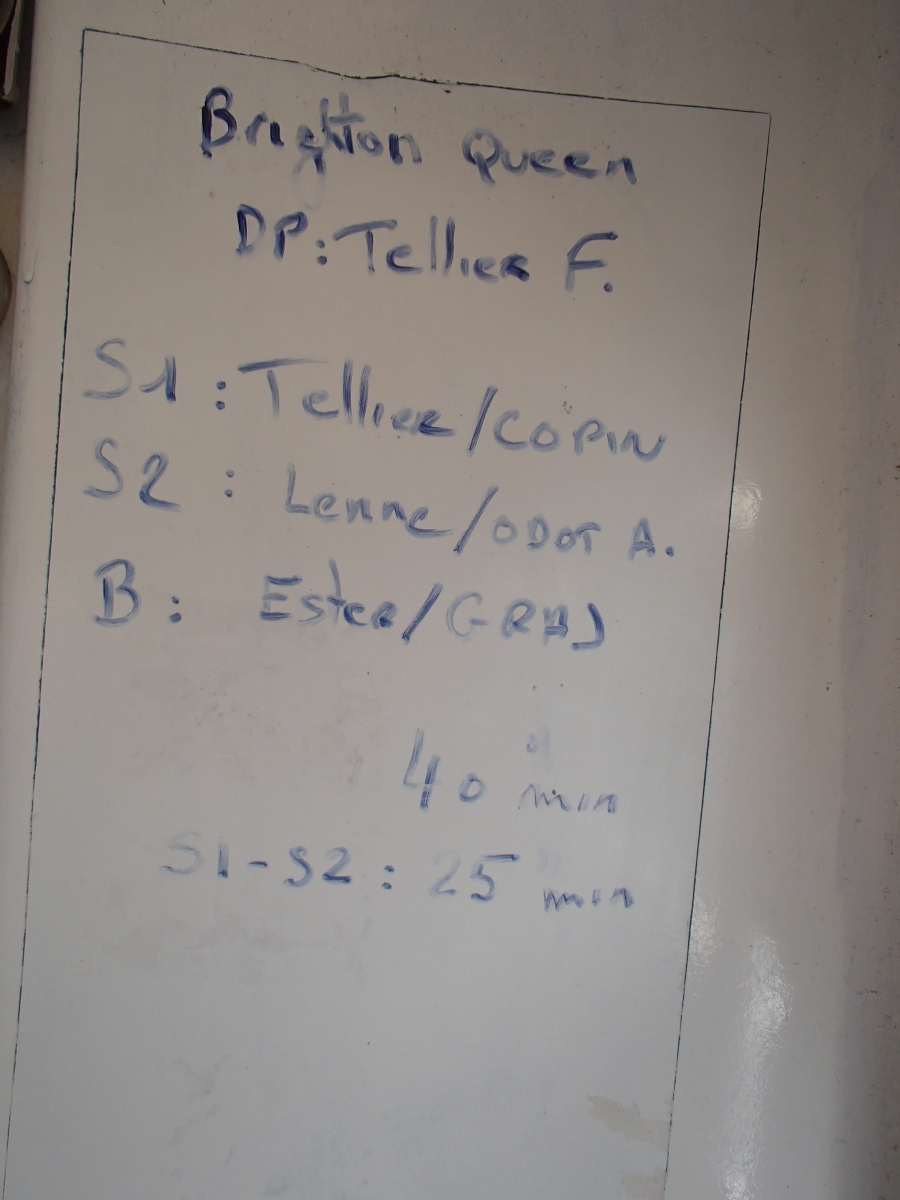 Brighton Queen
DP: Tellier F.
S1 : Tellier/COPIN
S2 : Lenne/ODOT A.
B : Ester/
40 min
S1-S2 : 25 min